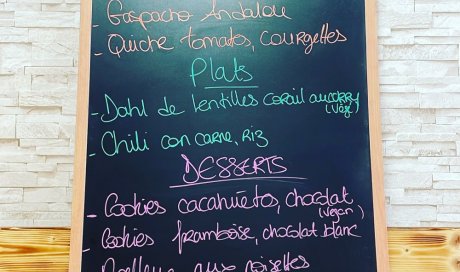 - Gaspacho Andalou
- Quiche tomates, courgettes
Plats
- Dahl de lentilles corail au curry
(Vég)
- Chili con carne, Riz
DESSERTS
- Cookies cacahuètes, chocolat
(vegan)
- Cookies framboise, chocolat blanc
aux noisettes